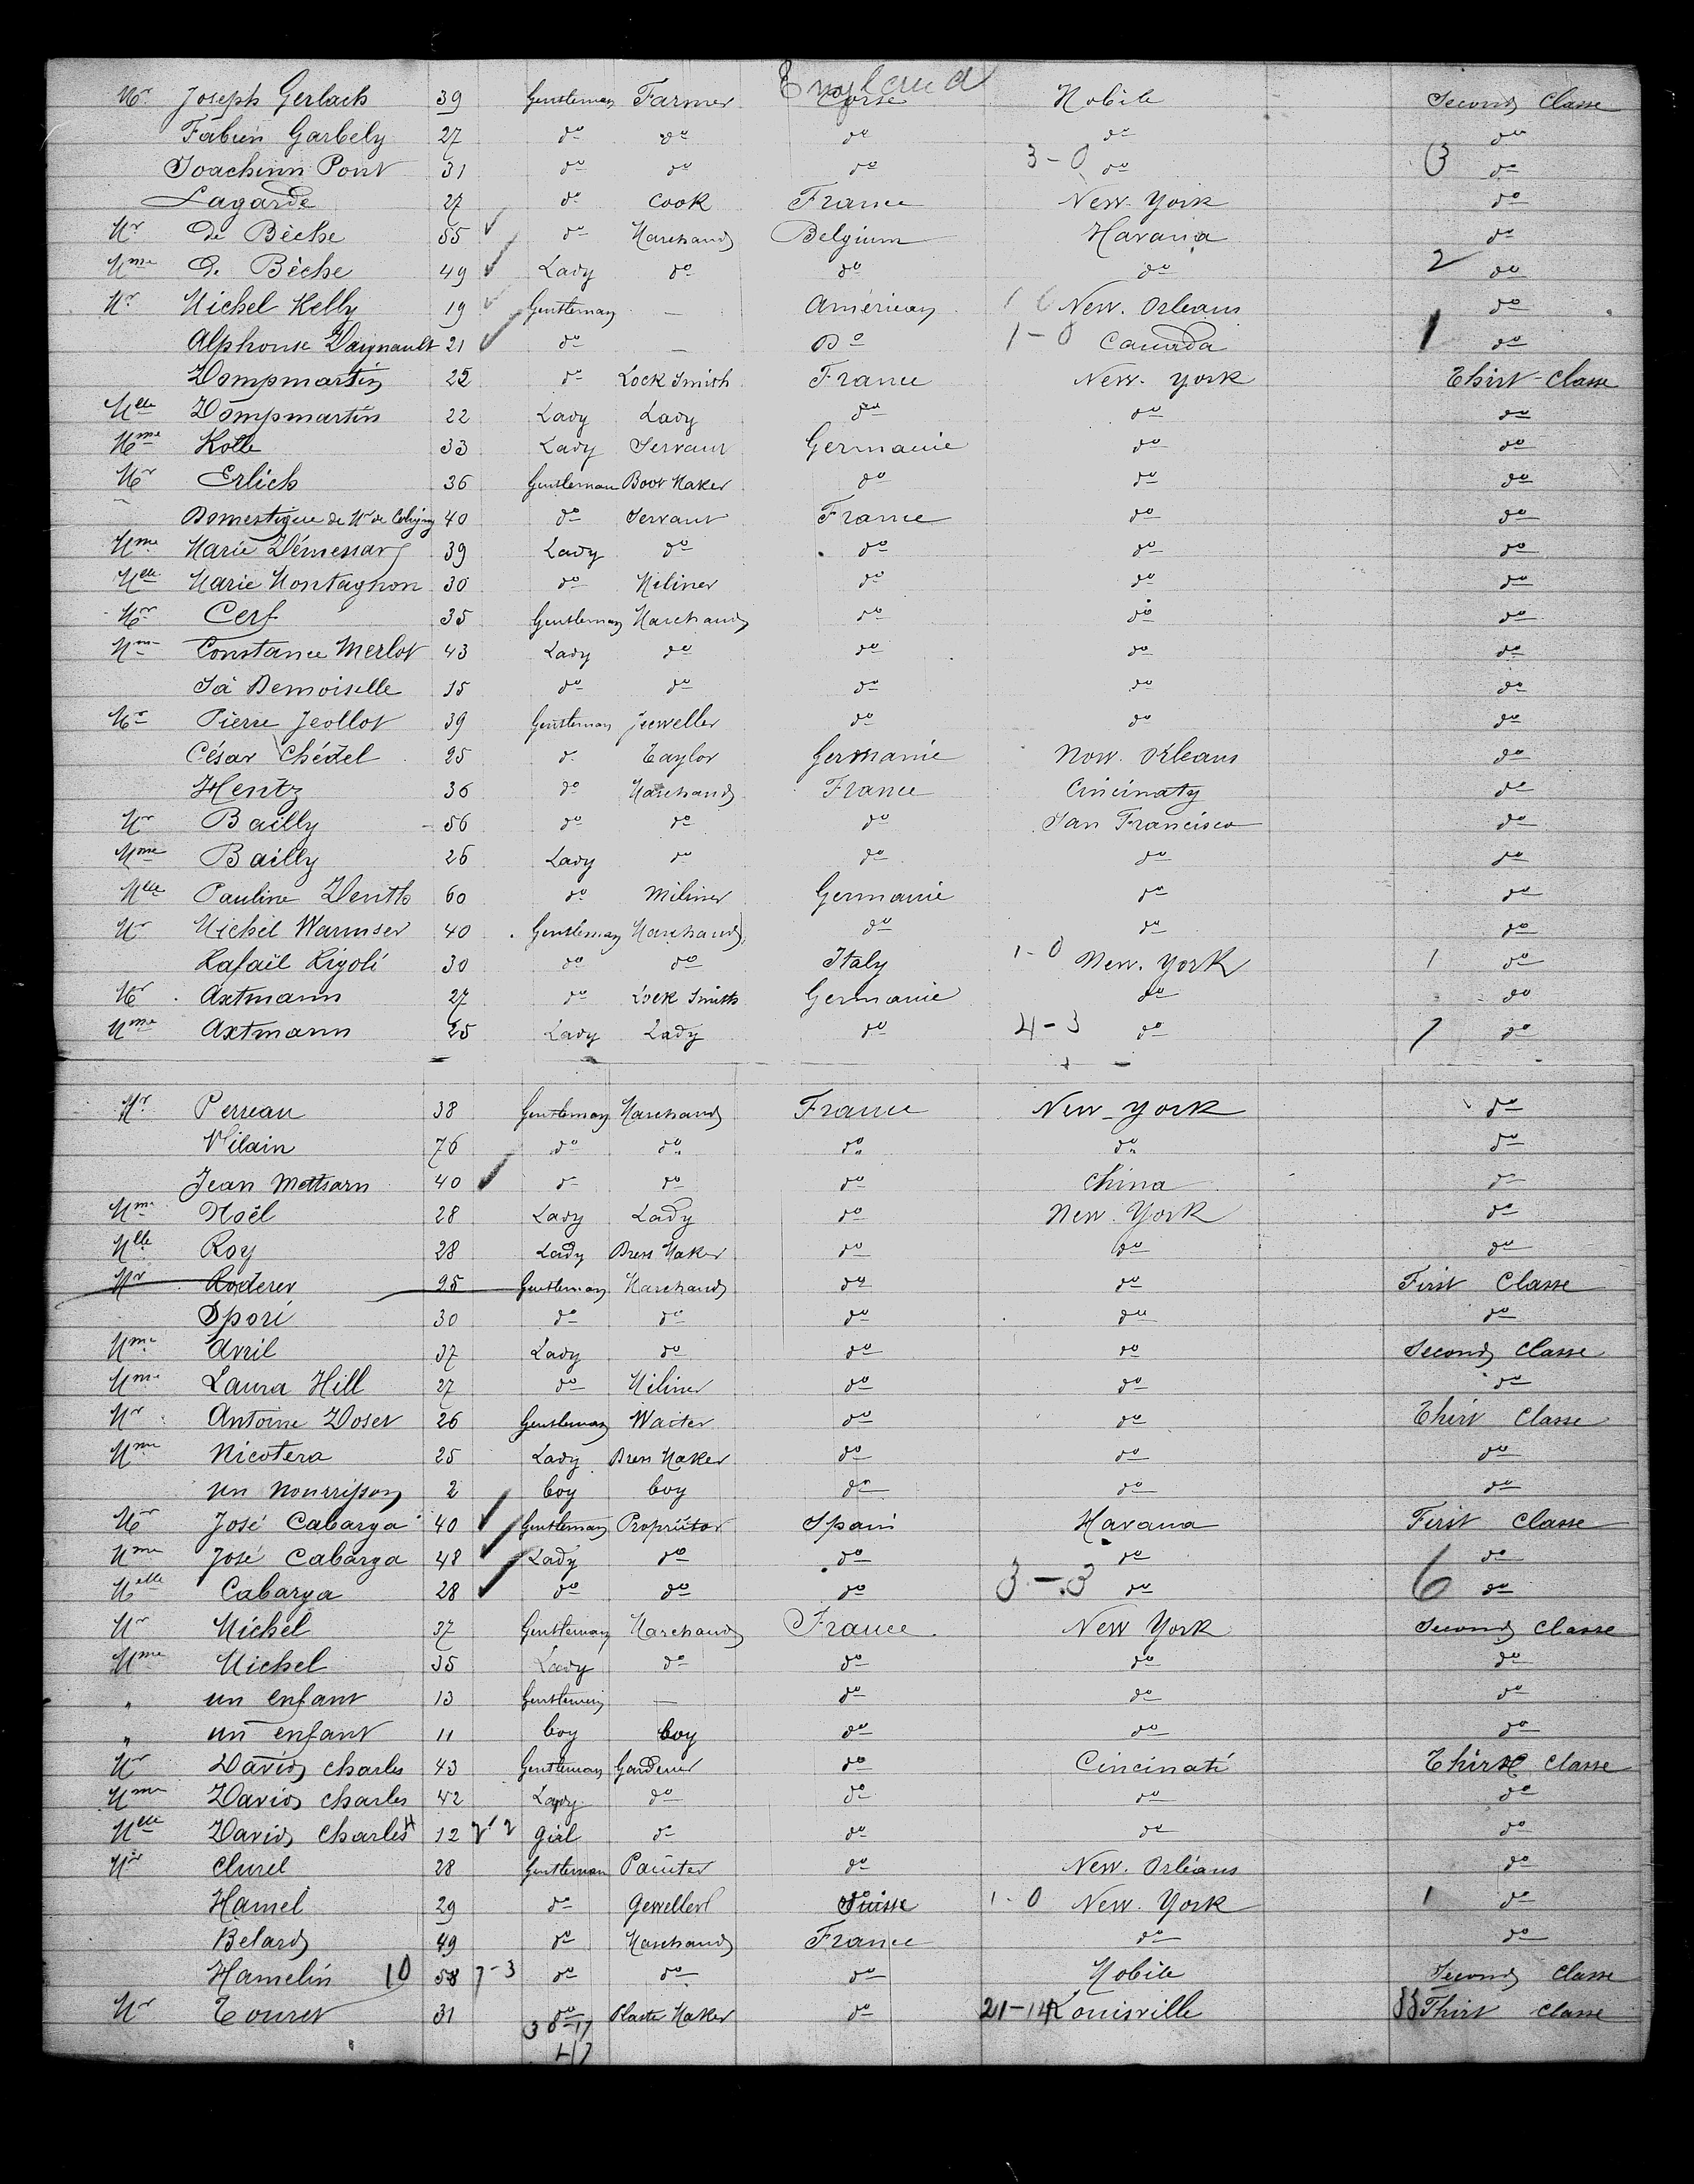 England
Mr Joseph Gerlach 39 Gentleman Farmer Corse Mobile Second Classe
Fabien Garbely 27 do do do do do
Joachim Pont 31 do do do 3-0 do 3 do
Lagarde 27 do Cook France New-York do
Mr De Bèche 55 do Marchand Belgium Havana do
Mme De Bèche 49 Lady do do do 2 do
Mr Michel Kelly 19 Gentleman — Américan New. Orleans do
Alphonse Daignault 21 do — Do 1-0 Canada 1 do
Dompmartin 25 do Lock Smith France New. York Thirt-Classe
Melle Dompmartin 22 Lady Lady do do do
Mme Kolle 33 Lady Servant Germanie do do
Mr Erlich 36 Gentleman Boot Maker do do do
Domestique de Mr de Coligny 40 do Servant France do do
Mme Marie Démessary 39 Lady do do do do
Melle Marie Montagnon 30 do Miliner do do do
Mr Cerf 35 Gentleman Marchand do do do
Mme Constance Merlot 43 Lady do do do do
Sa Demoiselle 15 do do do do do
Mr Pierre Jeollot 39 Gentleman Jeweller do do do
César Chédel 25 do Taylor Germanie New. Orleans do
Hentz 36 do Marchand France Cincinaty do
Mr Bailly 56 do do do San Francisco do
Mme Bailly 26 Lady do do do do
Melle Pauline 60 do Miliner Germanie do do
Mr Michel Warmser 40 Gentleman Marchand do do do
Rafaël Rigoli 30 do do Italy 1-0 New. York 1 do
Mr Axtmann 27 do Lock Smith Germanie do do
Mme Axtmann 25 Lady Lady do 4-3 do 7 do
Mr Perreau 38 Gentleman Marchand France New-York do
Vilain 76 do do do do do
Jean Mettsarn 40 do do do China do
Mme Noël 28 Lady Lady do New. York do
Melle Roy 28 Lady Dress Maker do do do
Mr Roderer 25 Gentleman Marchand do do First Classe
Spori 30 do do do do do
Mme Avril 37 Lady do do do Second Classe
Mme Laura Hill 27 do Miliner do do do
Mr Antoine Doser 26 Gentleman Waiter do do Thirt Classe
Mme Nicotera 25 Lady Dress Maker do do do
un nourrisson 2 boy boy do do do
Mr José Cabarga 40 Gentleman Propriétor Spain Havana First Classe
Mme José Cabarga 48 Lady do do do do
Melle Cabarga 28 do do do 3-3 do 6 do
Mr Michel 37 Gentleman Marchand France New York Second Classe
Mme Michel 35 Lady do do do do
" un enfant 13 Gentlemen — do do do
" un enfant 11 boy boy do do do
Mr David Charles 43 Gentleman Gardener do Cincinati Thirt Classe
Mme David Charles 42 Lady do do do do
Melle David Charles 12 2 girl do do do do
Mr Clurel 28 Gentleman Painter do New. Orléans do
Hamel 29 do Geweller Suisse 1-0 New. York 1 do
Belard 49 do Marchand France do do
Hamelin 10 58 7-3 do do do Mobile Second Classe
Mr Touret 31 do Plaster Maker do 21-14 Louisville Thirt Classe